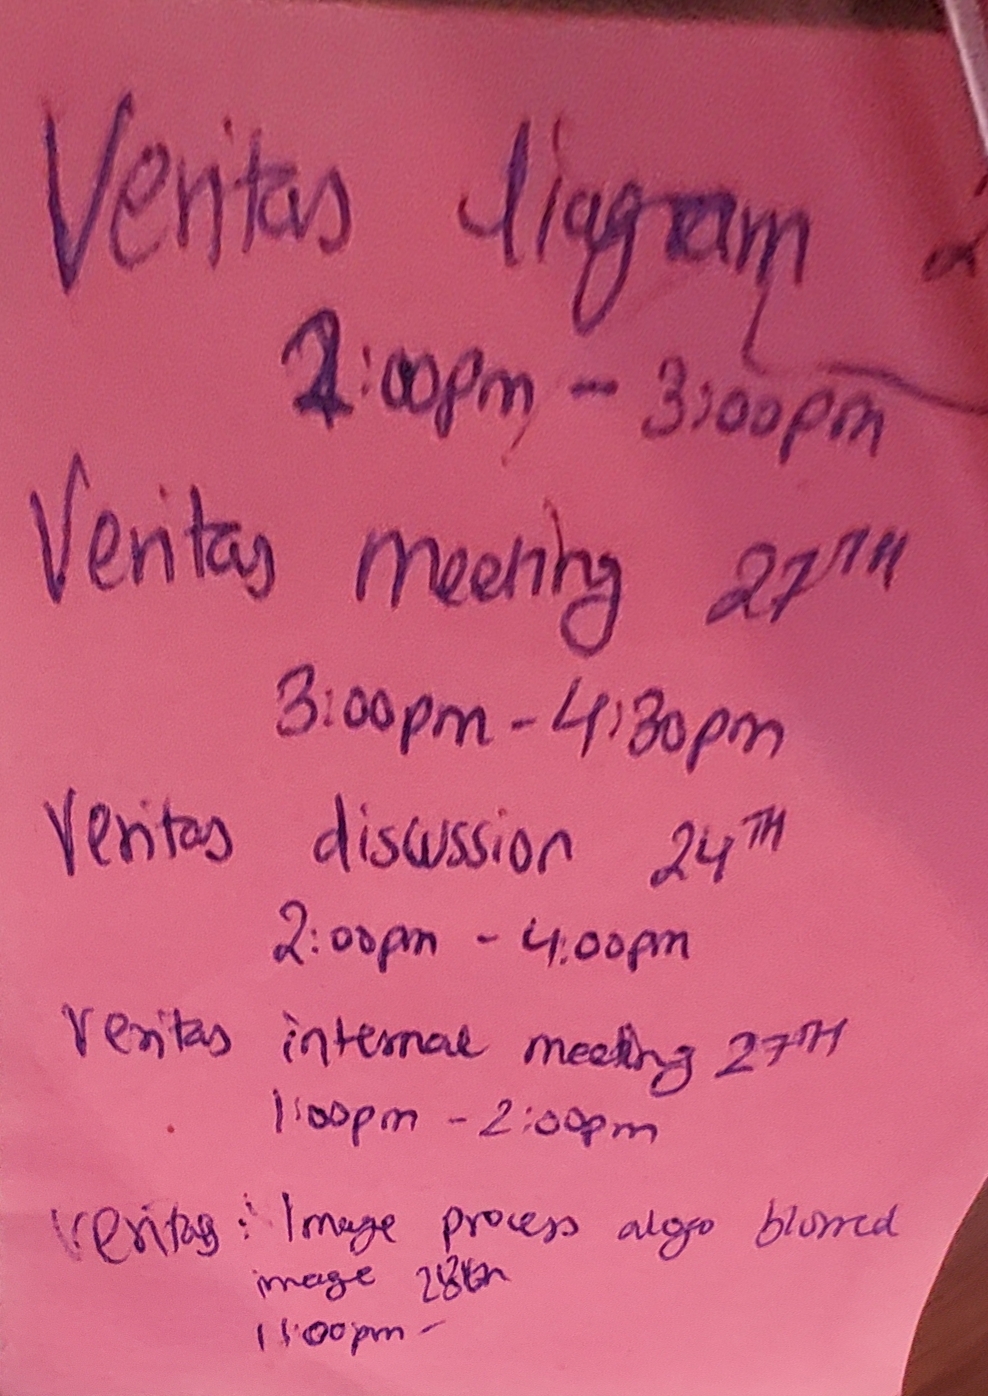 Veritas diagram
:00pm - 3:00pm
Veritas meeting 27TH
3:00pm - 4:30pm
Veritas discussion 24TH
2:00pm - 4:00pm
Veritas internal meeting 27TH
1:00pm - 2:00pm
Veritas: Image process algo blurred
image
11:00pm -